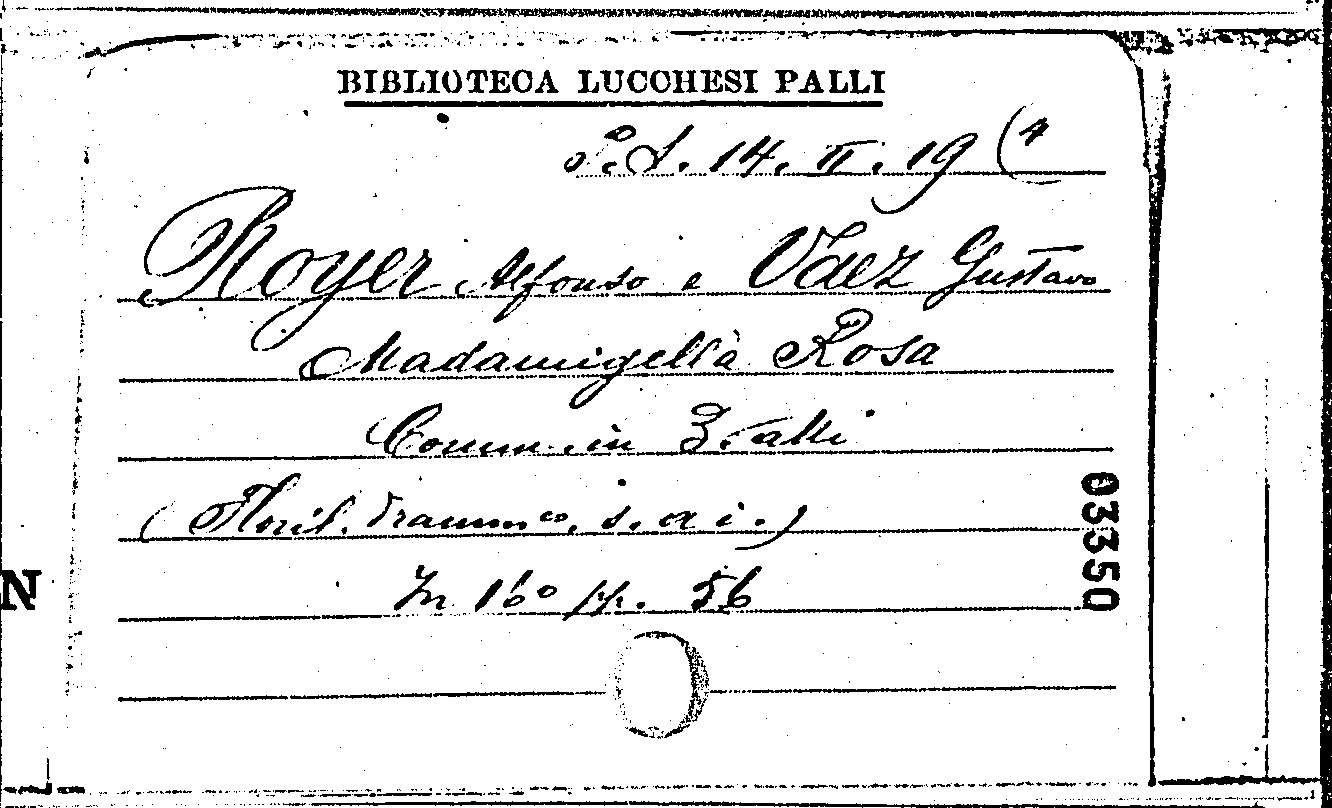 BIBLIOTECA LUCCHESI PALLI
P. S. 14. II. 19 (4
Royer Alfonso e Vaez Gustavo
Madamigella Rosa
Comm. in 3. atti
(Floril. dramm.co, s. a i.)
In 16° pp. 56
03350
N